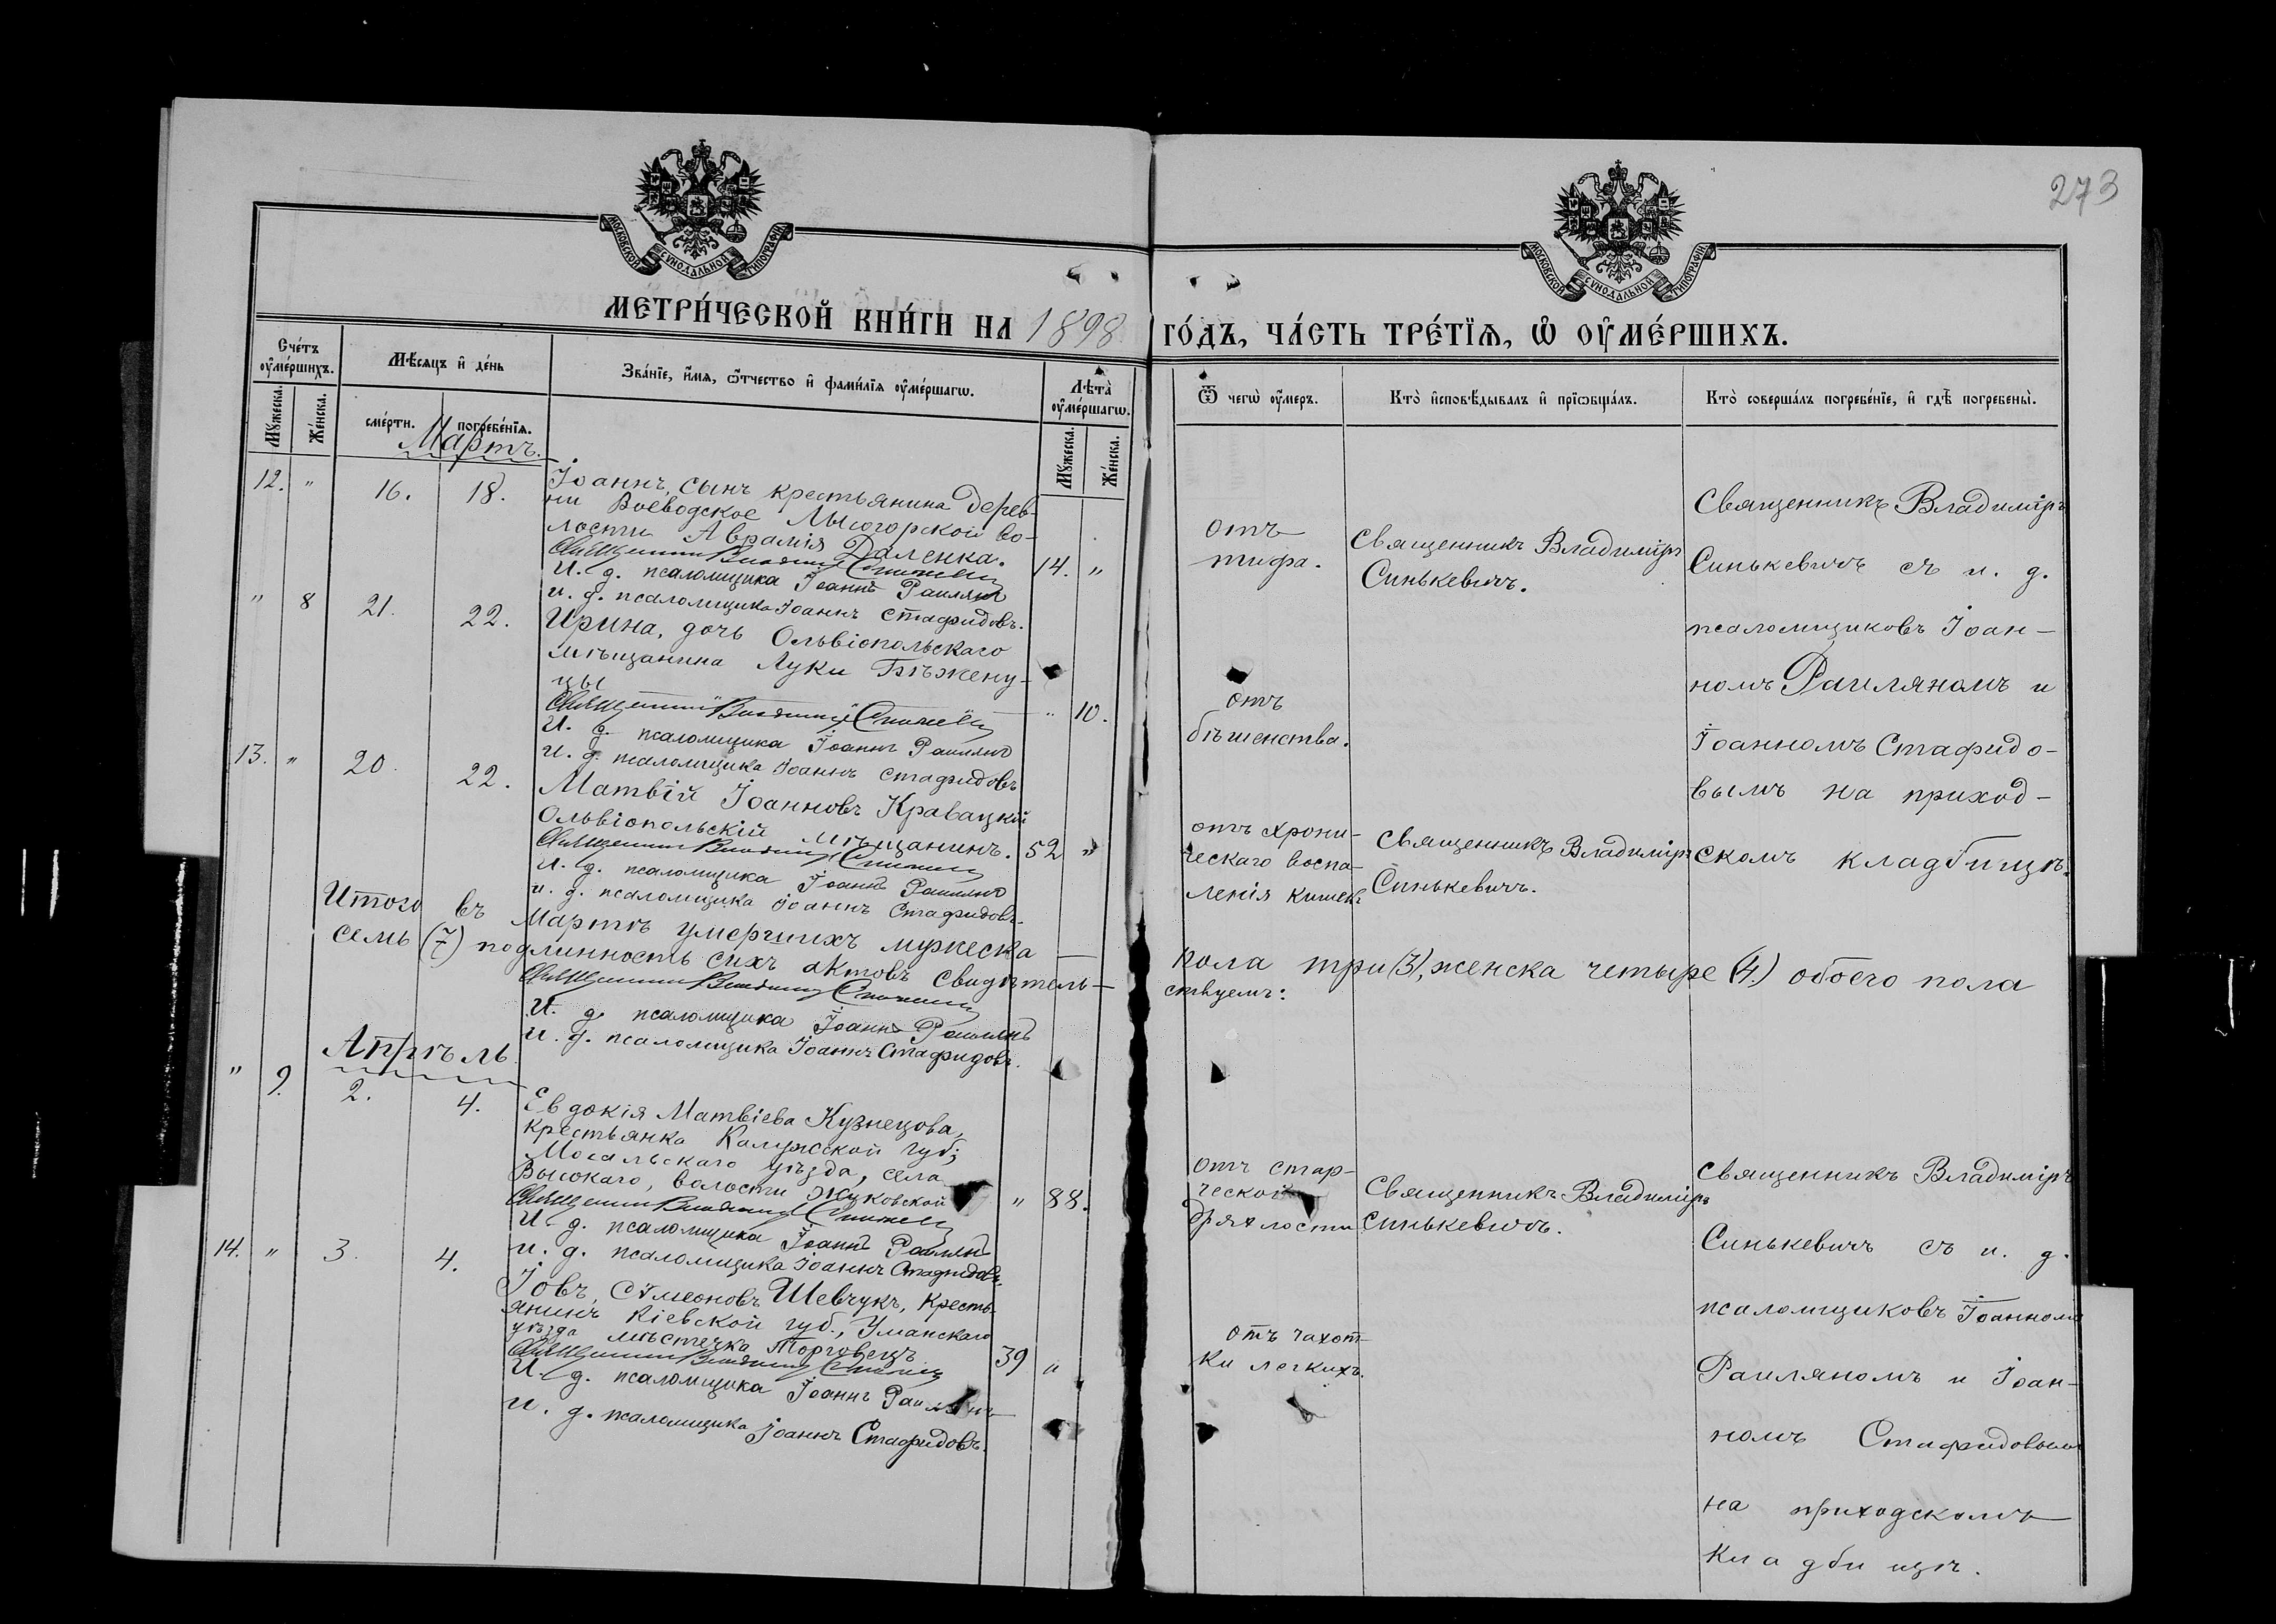 273
МОСКОВСКОЙ СѴНОДАЛЬНОЙ ТИПОГРАФІИ
МОСКОВСКОЙ СѴНОДАЛЬНОЙ ТИПОГРАФІИ
МЕТРИ́ЧЕСКОЙ КНИ́ГИ НА 1898 ГО́ДЪ, ЧА́СТЬ ТРЕ́ТЇѦ, Ѡ҆ ОУ҆МЕ́РШИХЪ.
Сче́тъ оу҆ме́ршихъ.
Мꙋ́жеска.
Же́нска.
Мѣ́сяцъ и҆ де́нь
сме́рти.
погребе́нїѧ.
Зва́нїе, и҆́мѧ, ѻ҆́тчество и҆ фами́лїѧ оу҆ме́ршагѡ.
Лѣ́та̀ оу҆ме́ршагѡ.
Мꙋ́жеска.
Же́нска.
Ѿ чегѡ̀ оу҆́меръ.
Кто̀ и҆сповѣ́дывалъ и҆ прїѡбща́лъ.
Кто̀ соверша́лъ погребе́нїе, и҆ гдѣ̀ погребены̀.
Мартъ.
12. " 16. 18.
Іоаннъ, сынъ крестьянина дерев-
ни Воеводское Лысогорской во-
лости Аврамія Даленка.
Священникъ Владиміръ Синькевичъ
И. д. псаломщика Іоаннъ Раилянъ
и. д. псаломщика Іоаннъ Стафидовъ.
14. "
отъ
тифа.
Священникъ Владиміръ
Синькевичъ.
Священникъ Владиміръ
Синькевичъ съ и. д.
псаломщиковъ Іоан-
номъ Раиляномъ и
Іоанномъ Стафидо-
вымъ на приход-
скомъ кладбищѣ.
" 8 21. 22.
Ирина, дочь Ольвіопольскаго
мѣщанина Луки Бѣжену-
цы
Священникъ Владиміръ Синькевичъ
И. д. псаломщика Іоаннъ Раилянъ
и. д. псаломщика Іоаннъ Стафидовъ
" 10.
отъ
бѣшенства.
13. " 20. 22.
Матвій Іоанновъ Кравацкій
Ольвіопольскій мѣщанинъ.
Священникъ Владиміръ Синькевичъ
И. д. псаломщика Іоаннъ Раилянъ
и. д. псаломщика Іоаннъ Стафидовъ.
52 "
отъ хрони-
ческаго воспа-
ленія кишекъ
Священникъ Владиміръ
Синькевичъ.
Итого въ Мартѣ умершихъ мужеска пола три (3), женска четыре (4.) обоего пола
семь (7) подлинность сихъ актовъ свидѣтель-
ствуемъ:
Священникъ Владиміръ Синькевичъ
И. д. псаломщика Іоаннъ Раилянъ
и. д. псаломщика Іоаннъ Стафидовъ.
Апрѣль
" 9. 2. 4.
Евдокія Матвіева Кузнецова,
крестьянка Калужской губ;
Мосальскаго уѣзда, села
Высокаго, волости Жуковской
Священникъ Владиміръ Синькевичъ
И. д. псаломщика Іоаннъ Раилянъ
и. д. псаломщика Іоаннъ Стафидовъ.
" 88.
отъ стар-
ческой
дряхлости
Священникъ Владиміръ
Синькевичъ.
Священникъ Владиміръ
Синькевичъ съ и. д.
псаломщиковъ Іоанномъ
Раиляномъ и Іоан-
номъ Стафидовымъ
на приходскомъ
кладбищѣ.
14. " 3. 4.
Іовъ, Сѵмеоновъ Шевчукъ, кресть-
янинъ Кіевской губ., Уманскаго
уѣзда мѣстечка Торговецъ
Священникъ Владиміръ Синькевичъ
И. д. псаломщика Іоаннъ Раилянъ
и. д. псаломщика Іоаннъ Стафидовъ.
39 "
отъ чахот-
ки легкихъ.